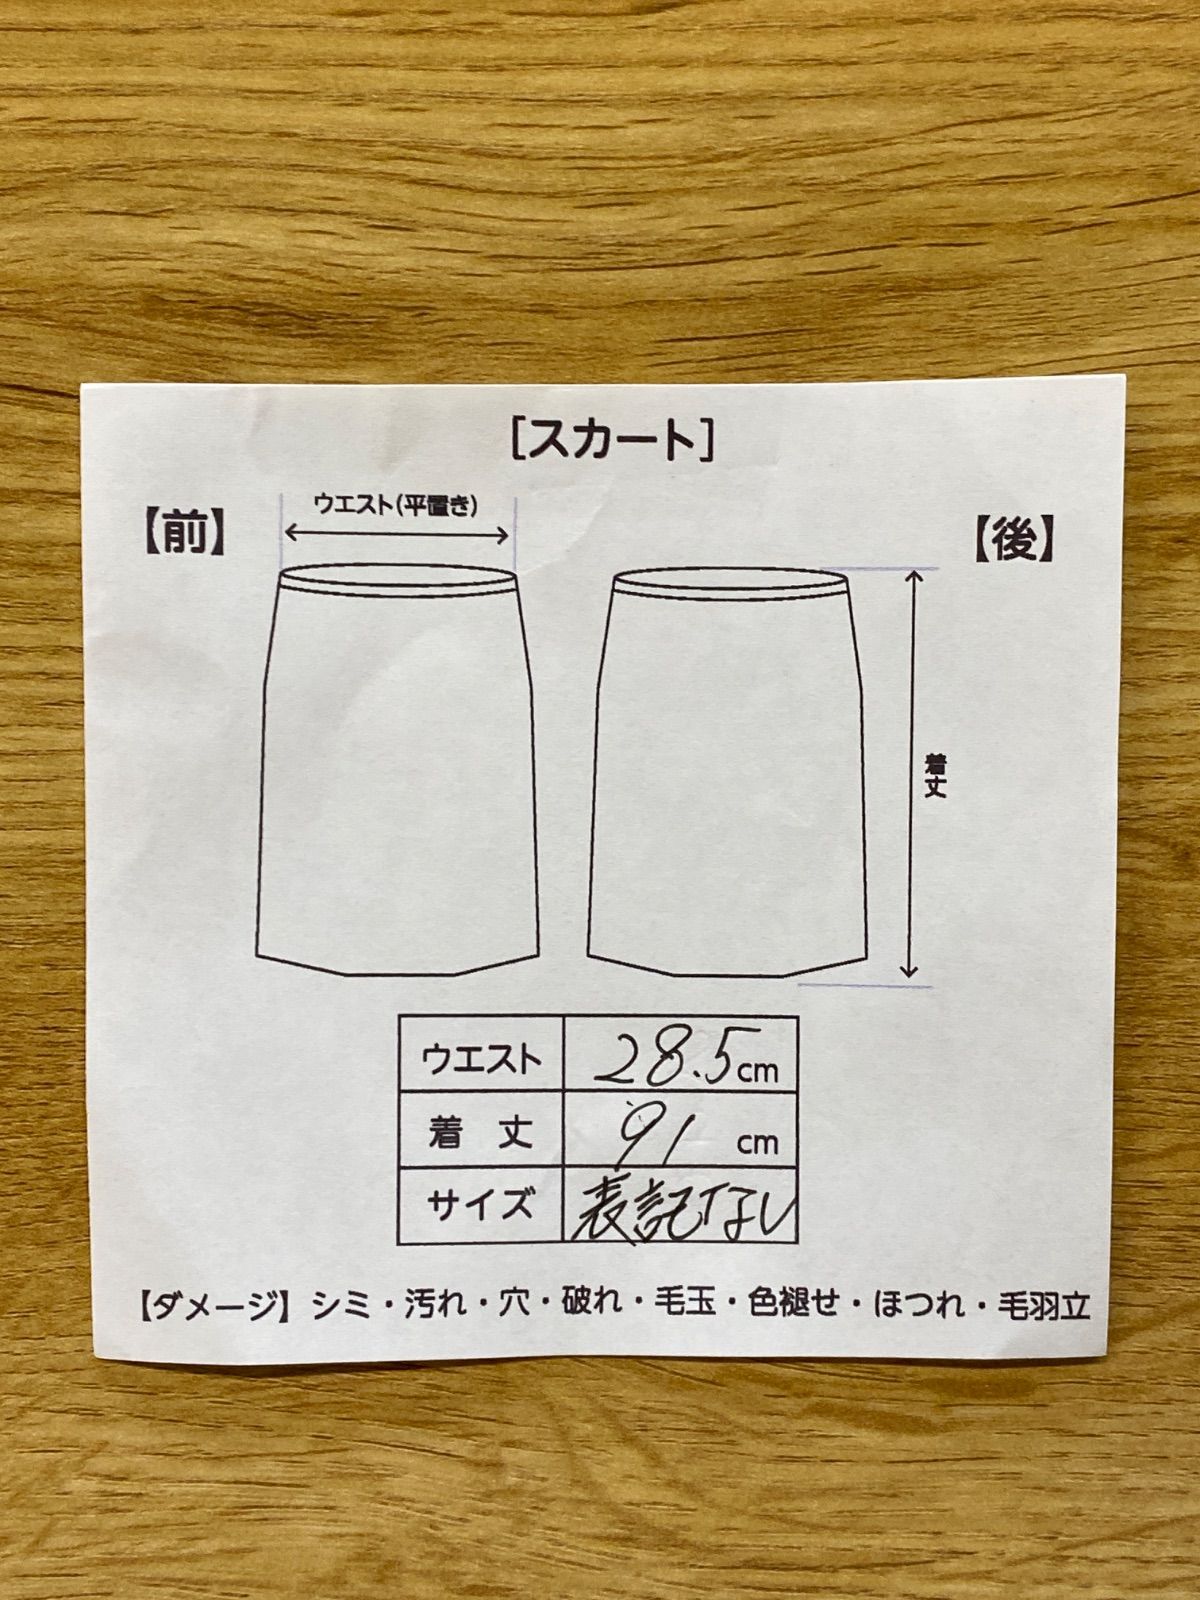 [スカート]
【前】
ウエスト(平置き)
【後】
着丈
ウエスト 28.5cm
着 丈 91 cm
サイズ 表記なし
【ダメージ】シミ・汚れ・穴・破れ・毛玉・色褪せ・ほつれ・毛羽立